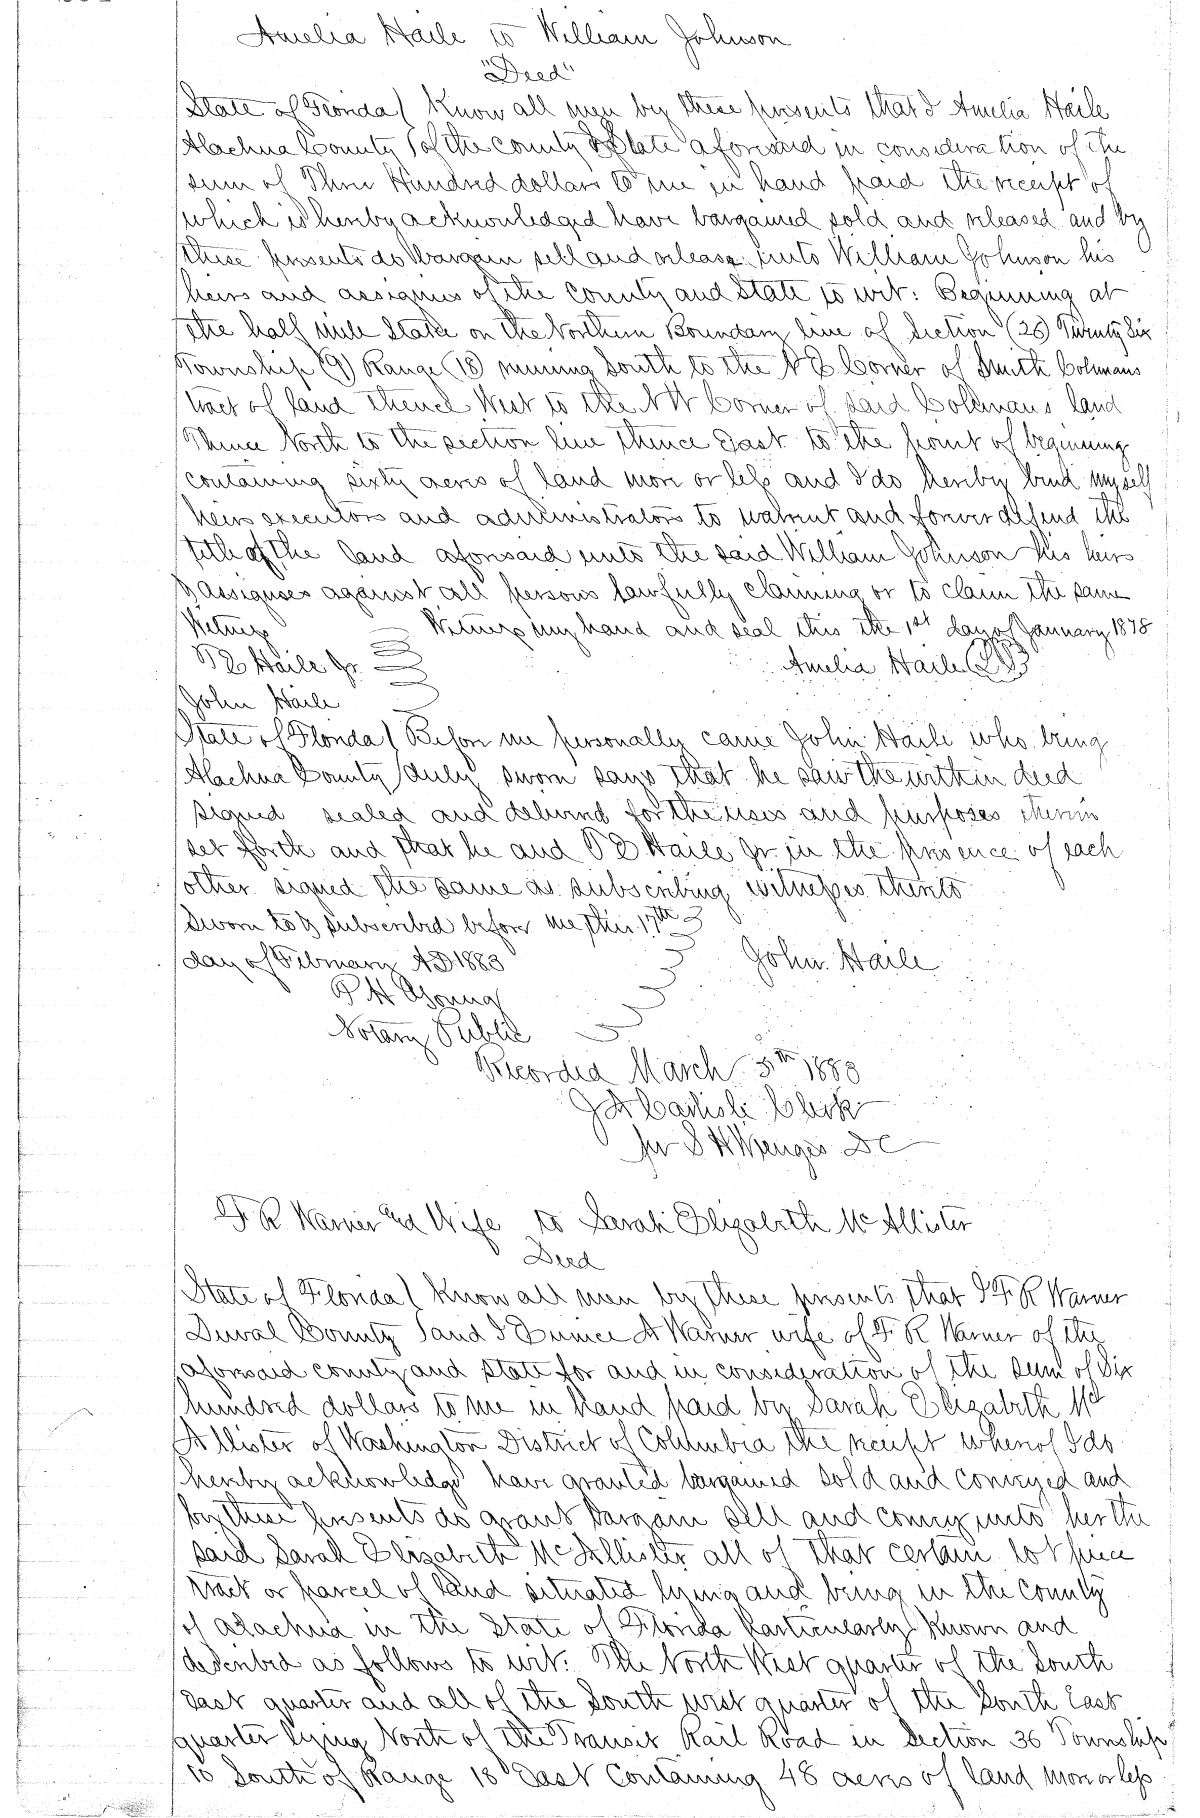 Amelia Haile to William Johnson
"Deed"
State of Florida ( Know all men by these presents that I Amelia Haile
Alachua County ( of the county & State aforesaid in consideration of the
sum of Three Hundred dollars to me in hand paid the receipt of
which is hereby acknowledged have bargained sold and released and by
these presents do bargain sell and release unto William Johnson his
heirs and assignes of the county and State to wit: Beginning at
the half mile Stake on the Northern Boundary line of Section (26) Twenty Six
Township (9) Range (18) running South to the N E Corner of Smith Colmans
tract of land thence West to the N W Corner of said Colemans land
Thence North to the section line thence East to the point of beginning
containing sixty acres of land more or less and I do hereby bind myself
heirs executors and administrators to warrent and forever defend the
title of the land aforesaid unto the said William Johnson his heirs
& assignes against all persons lawfully claiming or to claim the same
Witness Witness my hand and seal this the 1st day of January 1878
T E Haile Jr. Amelia Haile
John Haile
State of Florida ( Before me personally came John Haile who being
Alachua County ( duly sworn says that he saw the within deed
signed sealed and delivered for the uses and purposes therein
set forth and that he and T E Haile Jr. in the presence of each
other signed the same as subscribing witnesses thereto
Sworn to & subscribed before me this 17th
day of February AD 1883 John Haile
P H Young
Notary Public
Recorded March 5th 1883
J A Carlisle Clerk
per S H Wienges DC
F R Warner and Wife to Sarah Elizabeth McAllister
Deed
State of Florida ( Know all men by these presents that I F R Warner
Duval County ( and I Eunice A Warner wife of F R Warner of the
aforesaid county and state for and in consideration of the sum of Six
hundred dollars to me in hand paid by Sarah Elizabeth Mc
Allister of Washington District of Columbia the receipt whereof I do
hereby acknowledge have granted bargained sold and conveyed and
by these presents do grant bargain sell and convey unto her the
said Sarah Elizabeth McAllister all of that certain lot piece
tract or parcel of land situated lying and being in the county
of Alachua in the State of Florida Particularly Known and
described as follows to wit: The North West quarter of the South
East quarter and all of the South west quarter of the South East
quarter lying North of the Transit Rail Road in Section 36 Township
10 South of Range 18 East Containing 48 acres of land more or less